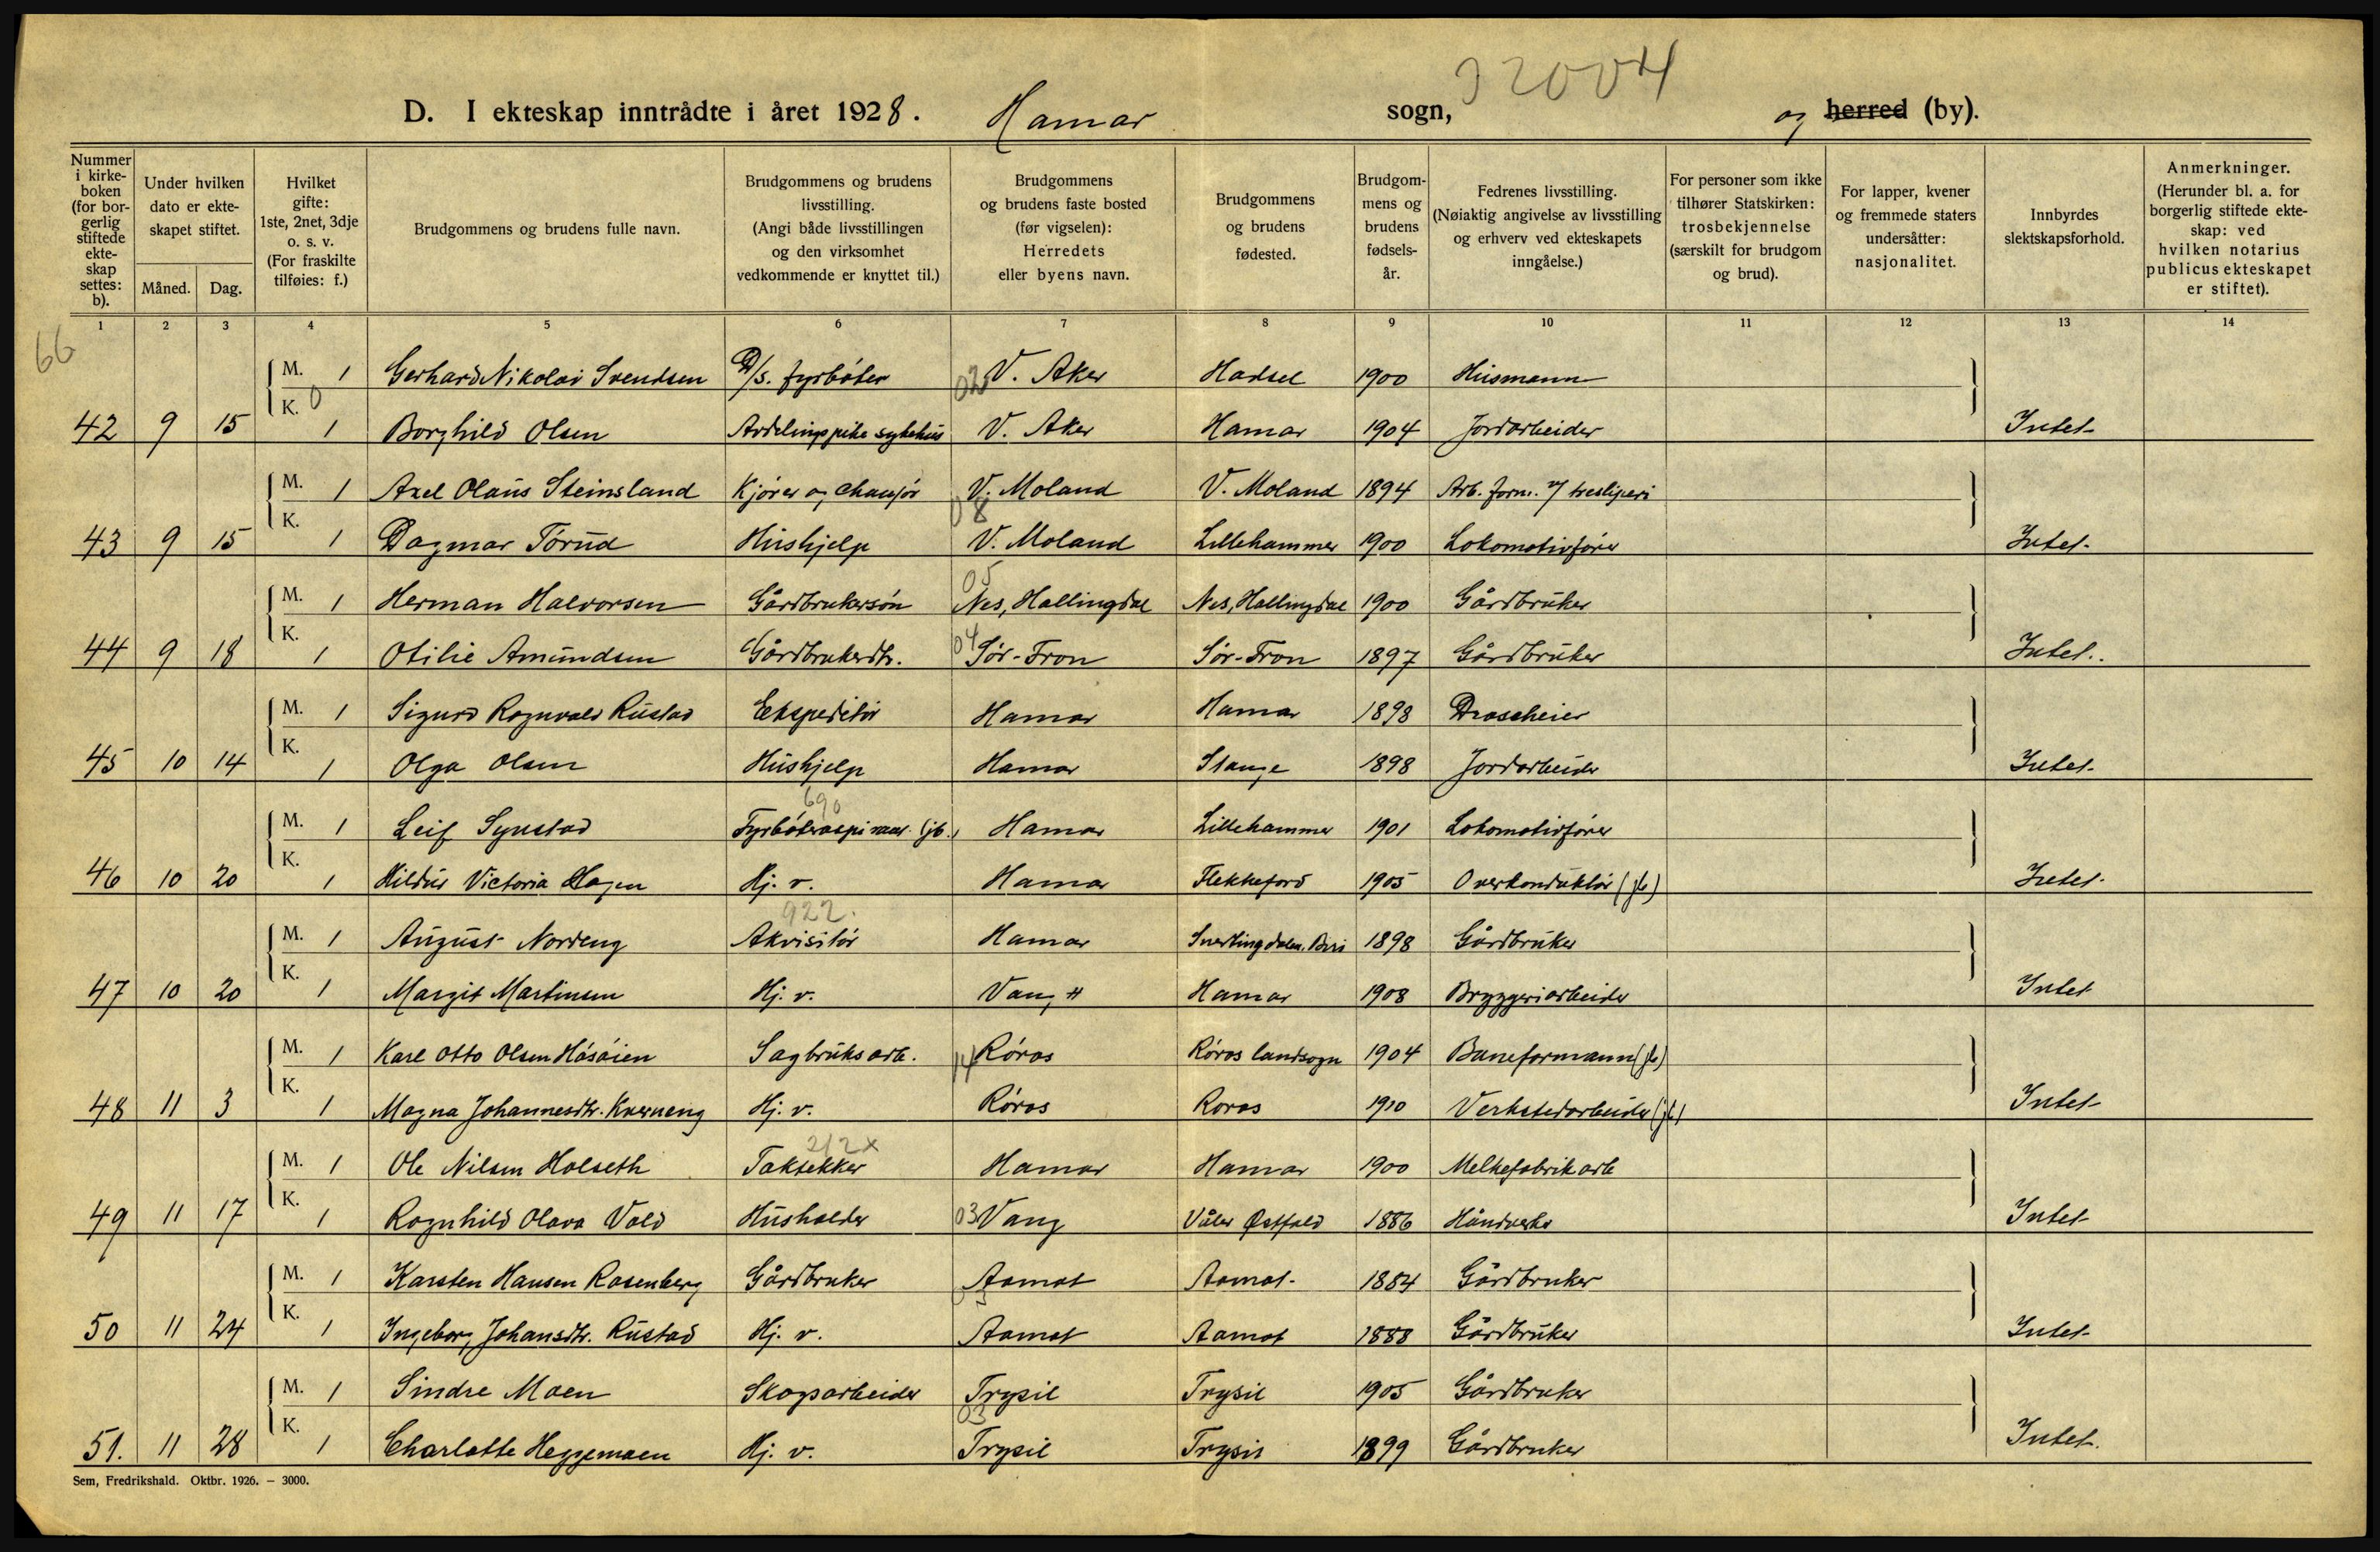 32004
D. I ekteskap inntrådte i året 1928. Hamar sogn, og herred (by).
Nummer i kirkeboken (for borgerlig stiftede ekteskap settes: b).
Under hvilken dato er ekteskapet stiftet.
Måned. Dag.
Hvilket gifte: 1ste, 2net, 3dje o. s. v. (For fraskilte tilføies: f.)
Brudgommens og brudens fulle navn.
Brudgommens og brudens livsstilling. (Angi både livsstillingen og den virksomhet vedkommende er knyttet til.)
Brudgommens og brudens faste bosted (før vigselen): Herredets eller byens navn.
Brudgommens og brudens fødested.
Brudgommens og brudens fødselsår.
Fedrenes livsstilling. (Nøiaktig angivelse av livsstilling og erhverv ved ekteskapets inngåelse.)
For personer som ikke tilhører Statskirken: trosbekjennelse (særskilt for brudgom og brud).
For lapper, kvener og fremmede staters undersåtter: nasjonalitet.
Innbyrdes slektskapsforhold.
Anmerkninger. (Herunder bl. a. for borgerlig stiftede ekteskap: ved hvilken notarius publicus ekteskapet er stiftet).
1 2 3 4 5 6 7 8 9 10 11 12 13 14
66
M. 1 Gerhard Nikolai Svendsen D/s. fyrbøter 02 V. Aker Hadsel 1900 Husmann
42 9 15 K. 0 1 Borghild Olsen Avdelingspike sykehus V. Aker Hamar 1904 Jordarbeider Intet
M. 1 Axel Olaus Steinsland Kjører og chaufør V. Moland V. Moland 1894 Arb. form. v/ tresliperi
43 9 15 K. 1 Dagmar Torud Hushjelp 08 V. Moland Lillehammer 1900 Lokomotivfører Intet.
M. 1 Herman Halvorsen Gårdbrukersøn 05 Nes, Hallingdal Nes, Hallingdal 1900 Gårdbruker
44 9 18 K. 1 Otilie Amundsen Gårdbrukerdtr. 04 Sør-Fron Sør-Fron 1897 Gårdbruker Intet.
M. 1 Sigurd Ragnvald Rustad Ekspeditør Hamar Hamar 1898 Droscheier
45 10 14 K. 1 Olga Olsen Hushjelp Hamar Stange 1898 Jordarbeider Intet
690
M. 1 Leif Synstad Fyrbøteraspirant (jb.) Hamar Lillehammer 1901 Lokomotivfører
46 10 20 K. 1 Hildur Victoria Hagen Hj. v. Hamar Flekkefjord 1905 Overkonduktør (jb) Intet.
922.
M. 1 August Nordeng Akvisitør Hamar Snertingdalen, Biri 1898 Gårdbruker
47 10 20 K. 1 Margit Martinsen Hj. v. Vang H Hamar 1908 Bryggeriarbeider Intet
M. 1 Karl Otto Olsen Høsøien Sagbruksarb. 14 Røros Røros landsogn 1904 Baneformann (jb)
48 11 3 K. 1 Magna Johannesdtr. Kverneng Hj. v. Røros Røros 1910 Verkstedarbeider (jb) Intet
212x
M. 1 Ole Nilsen Holseth Taktekker Hamar Hamar 1900 Melkefabrikarb
49 11 17 K. 1 Ragnhild Olava Vold Husholder 03 Vang Våler Østfold 1886 Håndverker Intet
M. 1 Karsten Hansen Rosenberg Gårdbruker Aamot Aamot 1884 Gårdbruker
50 11 24 K. 1 Ingeborg Johansdtr. Rustad Hj. v. 03 Aamot Aamot 1888 Gårdbruker Intet
M. 1 Sindre Moen Skogsarbeider Trysil Trysil 1905 Gårdbruker
51. 11 28 K. 1 Charlotte Heggemoen Hj. v. 03 Trysil Trysil 1899 Gårdbruker Intet.
Sem, Fredrikshald. Oktbr. 1926. – 3000.